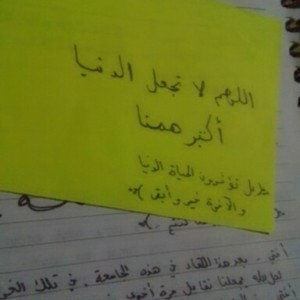 اللهم لا تجعل الدنيا
أكبر همنا
بل تؤثرون الحياة الدنيا
والآخرة خير وأبقى
أختي . بعد هذا اللقاء في هذه الجامعة . في تلك
يجعلنا نتقابل مرة أخرى